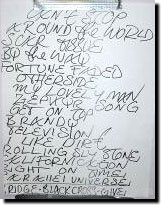 CAN'T STOP
AROUND THE WORLD
SCAR TISSUE
BY THE WAY
FORTUNE FADED
OTHERSIDE
MY LOVELY MAN
ZEPHYR SONG
GET ON TOP
BRANDY
TELEVISION
I LIKE DIRT
ROLLING SLY STONE
CALIFORNICATION
RIGHT ON TIME
PARALLEL UNIVERSE
BRIDGE-BLACK CROSS-GIVE